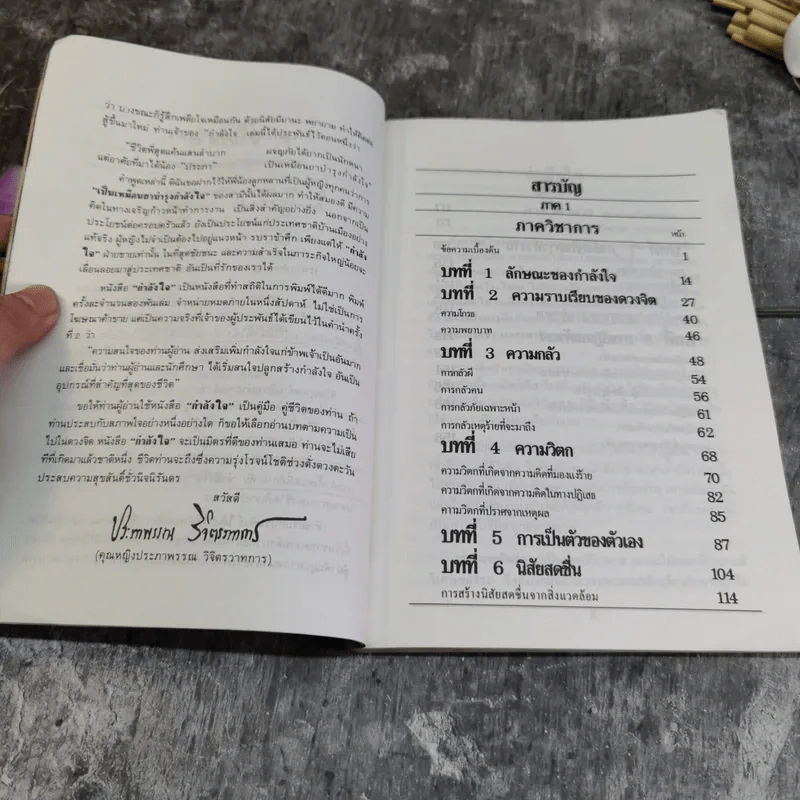 ว่า บางขณะก็รู้สึกเหลือใจเหมือนกัน ด้วยนิสัยมีมานะ พยายาม ทำให้คิดต่อ
สู้ขึ้นมาใหม่ ท่านเจ้าของ "กำลังใจ เล่มนี้ได้ประพันธ์ไว้ตอนหนึ่งว่า
"ชีวิตพี่สุดแค้นแสนลำบาก ผจญภัยได้ยากเป็นนักหนา
แต่อาศัยที่มาได้น้อง "ประภา" เป็นเหมือนยาบำรุงกำลังใจ"
คำพูดเหล่านี้ ดิฉันขอฝากไว้ให้พี่น้องลูกหลานที่เป็นผู้หญิงทุกคนว่าการ
"เป็นเหมือนยาบำรุงกำลังใจ" ของสามีนั้นได้ผลมาก ทำให้สมองดี มีความ
คิดในทางเจริญก้าวหน้าทำการงาน เป็นสิ่งสำคัญอย่างยิ่ง นอกจากเป็น
ประโยชน์ต่อครอบครัวแล้ว ยังเป็นประโยชน์แก่ประเทศชาติบ้านเมืองอย่าง
แท้จริง ผู้หญิงไม่จำเป็นต้องไปอยู่แนวหน้า รบราข้าศึก เพียงแต่ให้ "กำลัง
ใจ" ฝ่ายชายเท่านั้น ในที่สุดชัยชนะ และความสำเร็จในภาระกิจใหญ่น้อยจะ
เลื่อนลอยมาสู่ประเทศชาติ อันเป็นที่รักของเราได้
หนังสือ "กำลังใจ" เป็นหนังสือที่ทำสถิติในการพิมพ์ได้ดีมาก พิมพ์
ครั้งละจำนวนสองพันเล่ม จำหน่ายหมดภายในหนึ่งสัปดาห์ ไม่ใช่เป็นการ
โฆษณาค้าขาย แต่เป็นความจริงที่เจ้าของผู้ประพันธ์ได้เขียนไว้ในคำนำครั้ง
ที่ 2 ว่า
"ความสนใจของท่านผู้อ่าน ส่งเสริมเพิ่มกำลังใจแก่ข้าพเจ้าเป็นอันมาก
และเชื่อมั่นว่าท่านผู้อ่านและนักศึกษา ได้เริ่มสนใจปลูกสร้างกำลังใจ อันเป็น
อุปกรณ์ที่สำคัญที่สุดของชีวิต"
ขอให้ท่านผู้อ่านใช้หนังสือ "กำลังใจ" เป็นคู่มือ คู่ชีวิตของท่าน ถ้า
ท่านประสบกับสภาพใจอย่างหนึ่งอย่างใด ก็ขอให้เลือกอ่านบทตามความเป็น
ไปในดวงจิต หนังสือ "กำลังใจ" จะเป็นมิตรที่ดีของท่านเสมอ ท่านจะไม่เสีย
ทีที่เกิดมาแล้วชาติหนึ่ง ชีวิตท่านจะถึงซึ่งความรุ่งโรจน์โชติช่วงดั่งดวงตะวัน
ประสบความสุขสันติ์ชั่วนิจนิรันดร
สวัสดี
ประภาพรรณ วิจิตรวาทการ
(คุณหญิงประภาพรรณ วิจิตรวาทการ)
สารบัญ
ภาค 1
ภาควิชาการ
หน้า
ข้อความเบื้องต้น 1
บทที่ 1 ลักษณะของกำลังใจ 14
บทที่ 2 ความราบเรียบของดวงจิต 27
ความโกรธ 40
ความพยาบาท 46
บทที่ 3 ความกลัว 48
การกลัวผี 54
การกลัวคน 56
การกลัวภัยเฉพาะหน้า 61
การกลัวเหตุร้ายที่จะมาถึง 62
บทที่ 4 ความวิตก 68
ความวิตกที่เกิดจากความคิดที่มองแง่ร้าย 70
ความวิตกที่เกิดจากความคิดในทางปฏิเสธ 82
ความวิตกที่ปราศจากเหตุผล 85
บทที่ 5 การเป็นตัวของตัวเอง 87
บทที่ 6 นิสัยสดชื่น 104
การสร้างนิสัยสดชื่นจากสิ่งแวดล้อม 114